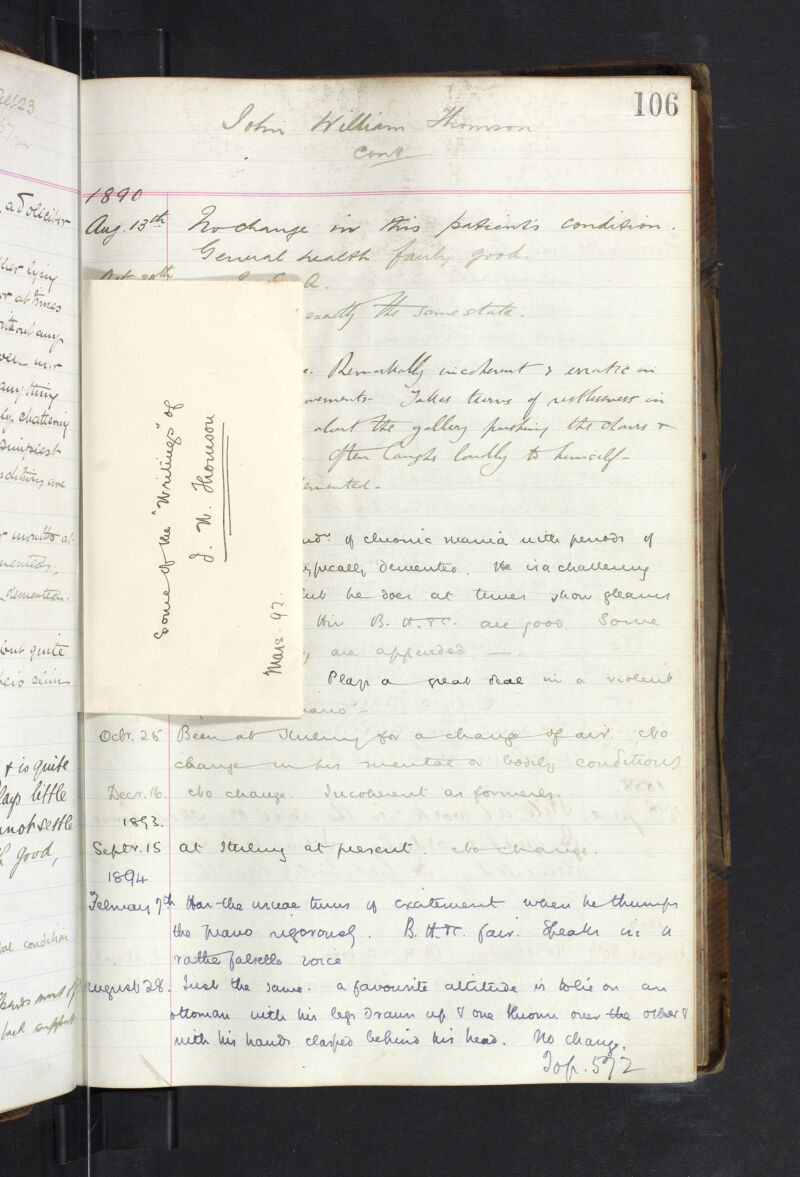 106
John William Thomson
cont
1890
Aug. 13th No change in this patient's condition.
General health fairly good.
exactly the same state.
Remarkably incoherent & erratic in
Takes turns of restlessness in
about the gallery pushing the chairs &
Often laughs loudly to himself.
demented.
of chronic mania with periods of
typically demented. He is a chattering
but he does at times show gleams
His B. H. &c. are good. Some
are appended —.
Plays a great deal in a violent
piano —
Some of the "Writings" of
J. W. Thomson
Mar: 92.
Octr. 25 Been at Stirling for a change of air. No
change in his mental or bodily conditions
Decr. 16. No change. Incoherent as formerly.
1893.
Septr. 15 at Stirling at present. No change.
1894
February 7th Has the usual turns of excitement when he thumps
the piano vigorously. B. H. &c. fair. Speaks in a
rather falsetto voice
August 28. Just the same. A favourite attitude is to lie on an
ottoman with his legs drawn up & one thrown over the other &
with his hands clasped behind his head. No change.
To p. 572
a Solicitor
her lying
or at times
without any
anything
chattering
simplest
months at
demented.
but quite
& is quite
plays little
cannot settle
good,
condition
support